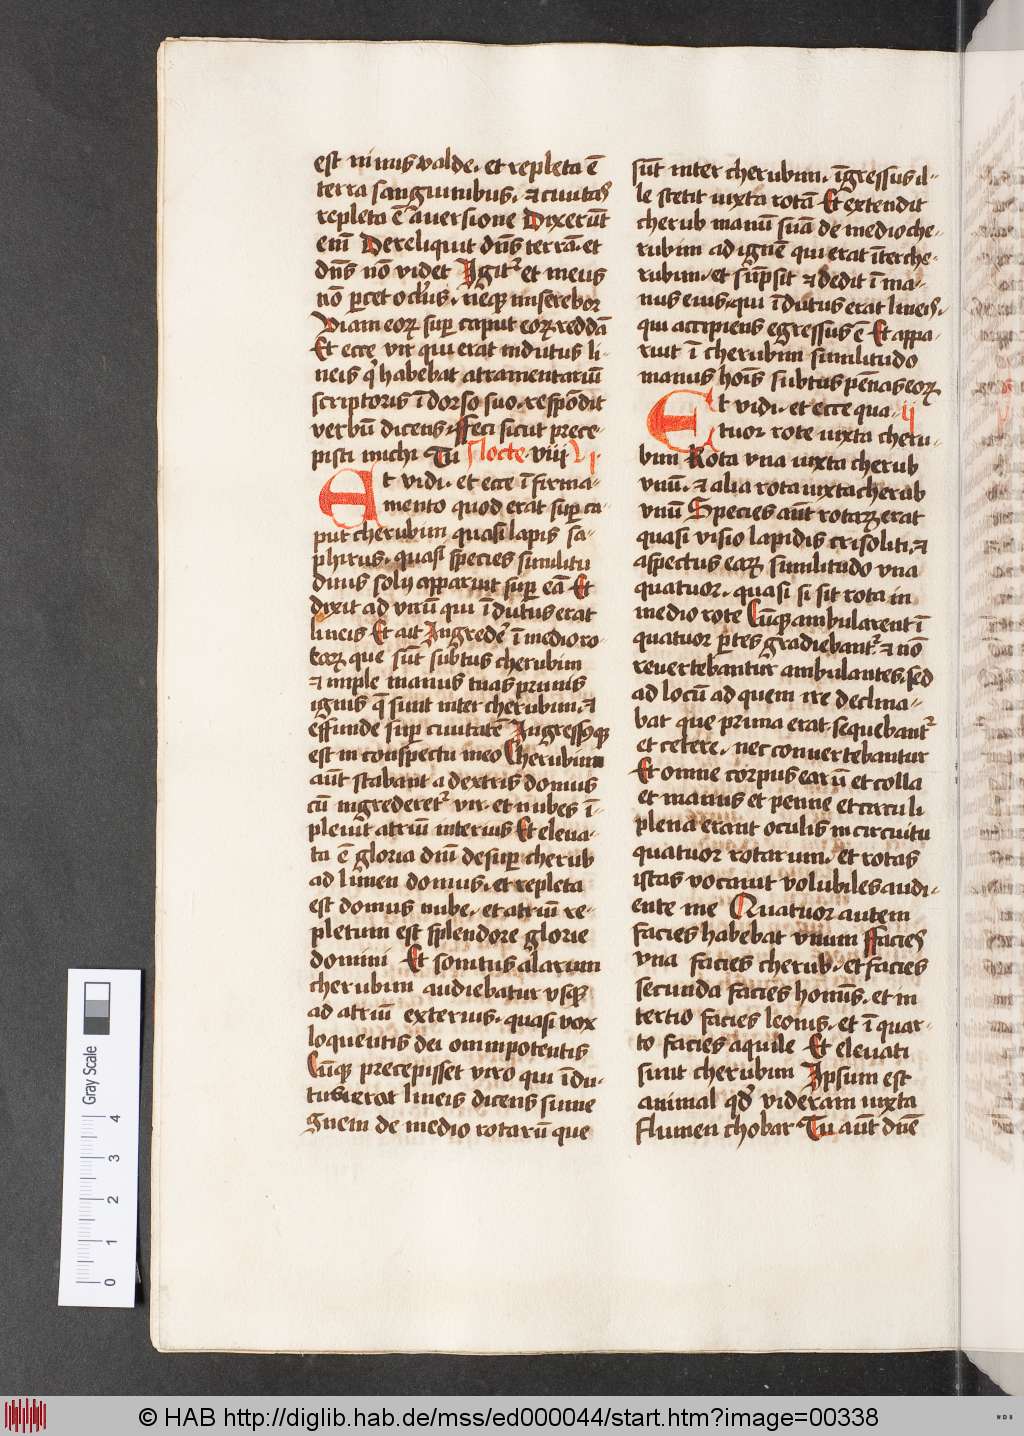 est nimis valde. et repleta ē
terra sanguinibus. et ciuitas
repleta ē auersione Dixerūt
enī Dereliquit dn̄s terrā. et
dn̄s nō videt Igit᷑ et meus
nō parcet oculus. neqꝫ miserebor
Viam eoꝝ sup̄ caput eoꝝ reddā
Et ecce vir qui erat indutus li-
neis qͥ habebat atramentariū
scriptoris ī dorso suo. respōdit
verbū dicens. ffeci sicut prece-
pisti michi Tu
Et vidi. et ecce ī firma-
mento quod erat sup̄ ca-
put cherubim quasi lapis sa-
phirus. quasi species similitu
dinis solij apparuit sup̄ eā Et
dixit ad virū qui īdutus erat
lineis Et ait Ingredē ī medio ro-
taꝝ que sūt subtus cherubim
et imple manus tuas prunis
ignis q̄ sunt inter cherubim. et
effunde sup̄ ciuitatē Ingressusqꝫ
est in conspectu meo Cherubim
aūt stabant a dextris domus
cū ingrederet᷑ vir. et nubes ī-
pleuit atriū interius Et eleua-
ta ē gloria dn̄i desup̄ cherub
ad limen domus. et repleta
est domus nube. et atriū re-
pletum est splendore glorie
domini Et sonitus alarum
cherubim audiebatur vsqꝫ
ad atriū exterius. quasi vox
loquentis dei omnipotentis
Cūqꝫ precepisset viro qui īdu-
tus erat lineis dicens sume
gnem de medio rotarū que
sūt inter cherubim. īgressus il-
le stetit iuxta rotā Et extendit
cherub manū suā de medio che-
rubim ad ignē qui erat īter che-
rubim. et sūpsit et dedit ī ma-
nus eius. qui īdutus erat lineis.
qui accipiens egressus ē Et appa-
ruit ī cherubim similitudo
manus hoīs subtus pēnas eoꝝ
Et vidi. et ecce qua- ij
tuor rote iuxta cheru-
bim Rota vna iuxta cherub
vnū. et alia rota iuxta cherub
vnū Species aūt rotaꝝ erat
quasi visio lapidis crisoliti. et
aspectus eaꝝ similitudo vna
quatuor. quasi si sit rota in
medio rote Cūqꝫ ambularent ī
quatuor partes gradiebant᷑ et nō
reuertebantur ambulantes. sed
ad locū ad quem ire declina-
bat que prima erat. sequebant᷑
et cetere. nec conuertebantur
Et omne corpus earū et colla
et manus et penne et circuli
plena erant oculis in circuitu
quatuor rotarum. et rotas
istas vocauit volubiles audi-
ente me Quatuor autem
facies habebat vnum ffacies
vna facies cherub. et facies
secunda facies homīs. et in
tertio facies leonis. et ī quar-
to facies aquile Et eleuati
sunt cherubim Ipsum est
animal qd̄ videram iuxta
flumen chobar Tu aūt dn̄e
Gray Scale
0 1 2 3 4
© HAB http://diglib.hab.de/mss/ed000044/start.htm?image=00338